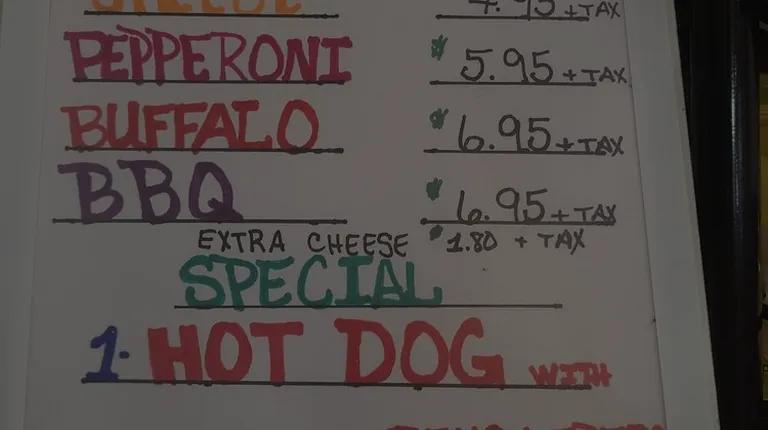 CHEESE 4.95 + TAX
PEPPERONI $ 5.95 + TAX
BUFFALO $ 6.95 + TAX
BBQ $ 6.95 + TAX
EXTRA CHEESE $ 1.80 + TAX
SPECIAL
1. HOT DOG WITH